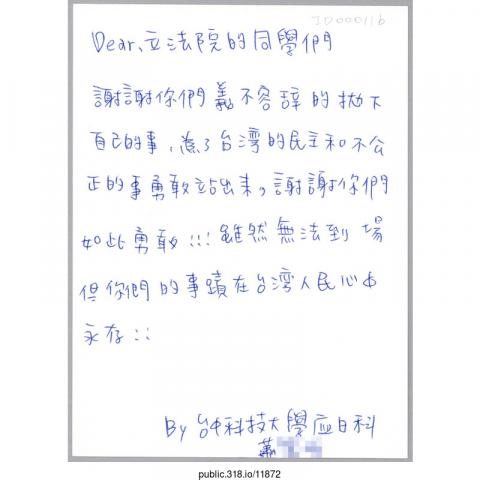 JD000116
Dear、立法院的同學們
謝謝你們義不容辞的拋下
自己的事，為了台湾的民主和不公
正的事勇敢站出來，謝謝你們
如此勇敢!!!雖然無法到場
但你們的事蹟在台湾人民心中
永存::
By 台中科技大學应日科
蕭
public.318.io/11872